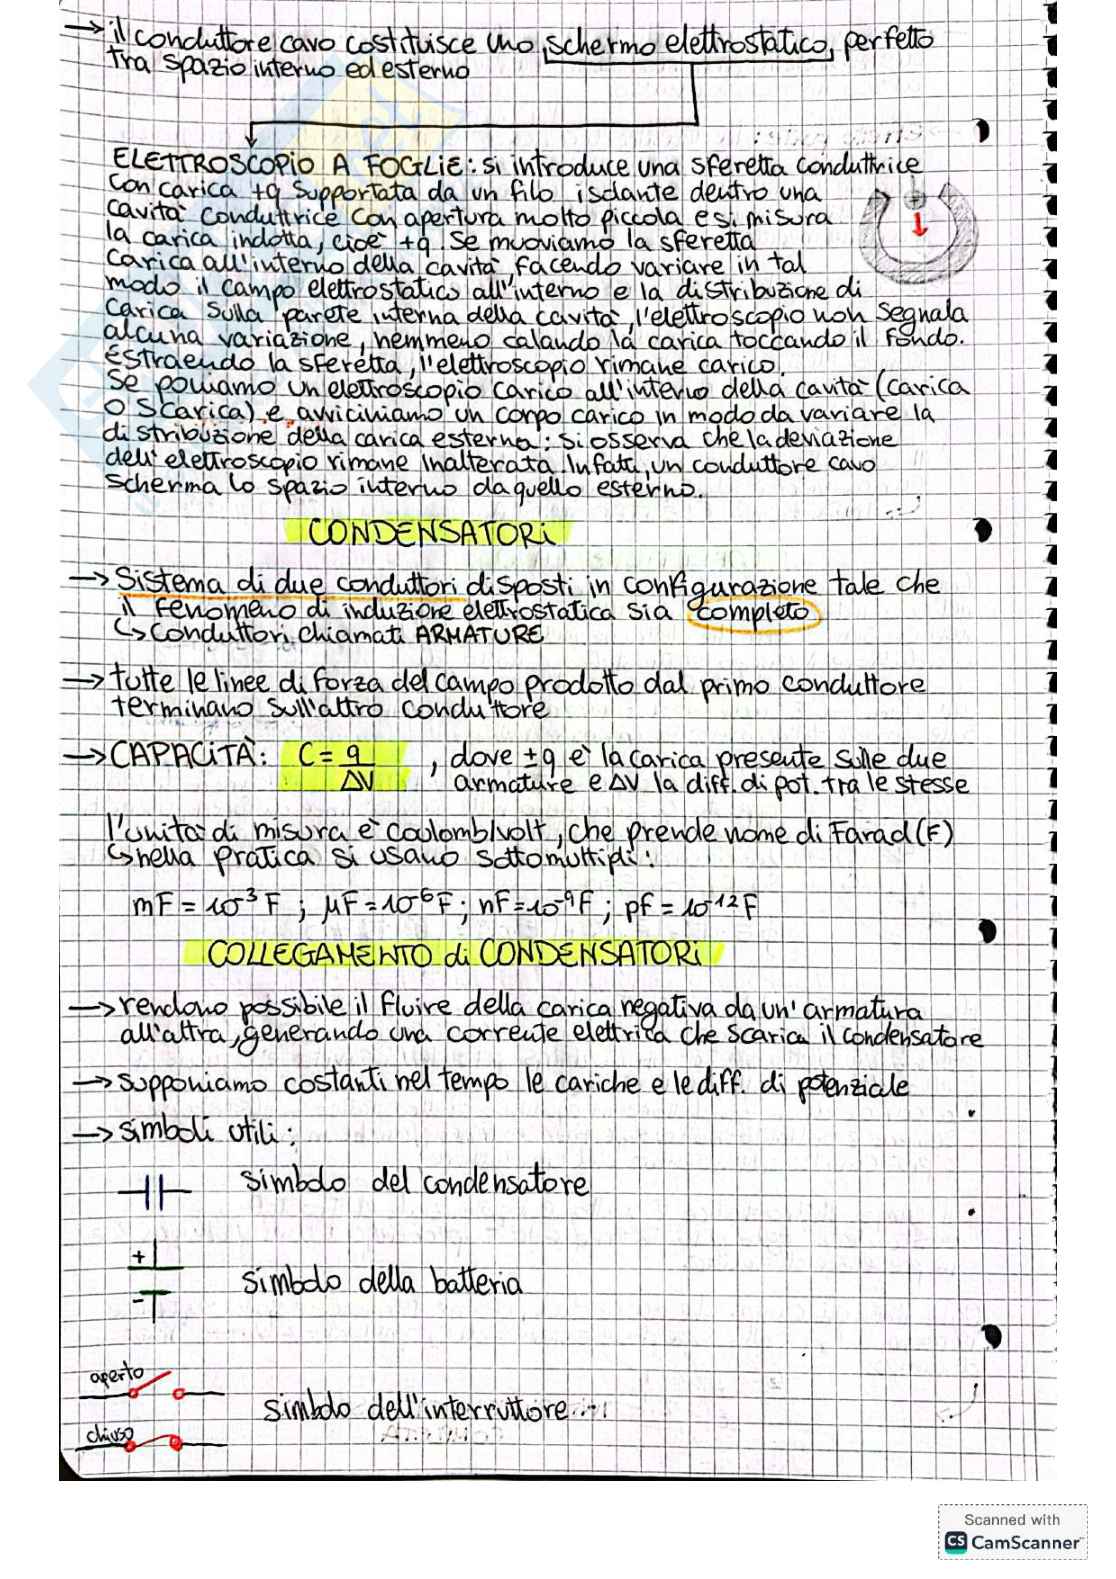 → il conduttore cavo costituisce uno schermo elettrostatico, perfetto
tra spazio interno ed esterno
ELETTROSCOPIO A FOGLIE: si introduce una sferetta conduttrice
con carica +q supportata da un filo isolante dentro una
cavità conduttrice con apertura molto piccola e si misura
la carica indotta, cioè +q. Se muoviamo la sferetta
carica all'interno della cavità, facendo variare in tal
modo il campo elettrostatico all'interno e la distribuzione di
carica sulla parete interna della cavità, l'elettroscopio non segnala
alcuna variazione, nemmeno calando la carica toccando il fondo.
Estraendo la sferetta, l'elettroscopio rimane carico.
Se poniamo un elettroscopio carico all'interno della cavità (carica
o scarica) e avviciniamo un corpo carico in modo da variare la
distribuzione della carica esterna: si osserva che la deviazione
dell'elettroscopio rimane inalterata. Infatti, un conduttore cavo
scherma lo spazio interno da quello esterno.
CONDENSATORI
→ Sistema di due conduttori disposti in configurazione tale che
il fenomeno di induzione elettrostatica sia completo
↳ conduttori chiamati ARMATURE
→ tutte le linee di forza del campo prodotto dal primo conduttore
terminano sull'altro conduttore
→ CAPACITÀ: C = q/ΔV, dove ±q è la carica presente sulle due
armature e ΔV la diff. di pot. tra le stesse
l'unità di misura è Coulomb/volt, che prende nome di Farad (F)
↳ nella pratica si usano sottomultipli:
mF = 10⁻³ F ; μF = 10⁻⁶ F ; nF = 10⁻⁹ F ; pF = 10⁻¹² F
COLLEGAMENTO di CONDENSATORI
→ rendono possibile il fluire della carica negativa da un'armatura
all'altra, generando una corrente elettrica che scarica il condensatore
→ supponiamo costanti nel tempo le cariche e le diff. di potenziale
→ simboli utili:
simbolo del condensatore
+
simbolo della batteria
-
aperto
simbolo dell'interruttore
chiuso
Scanned with
CS CamScanner